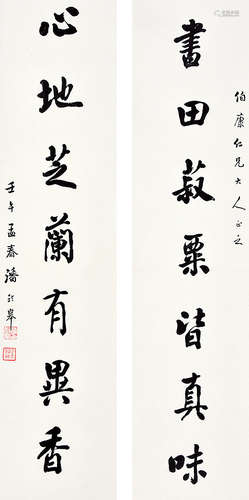 伯廉仁兄大人正之
書田菽粟皆真味
心地芝蘭有異香
壬午孟春潘齡皋